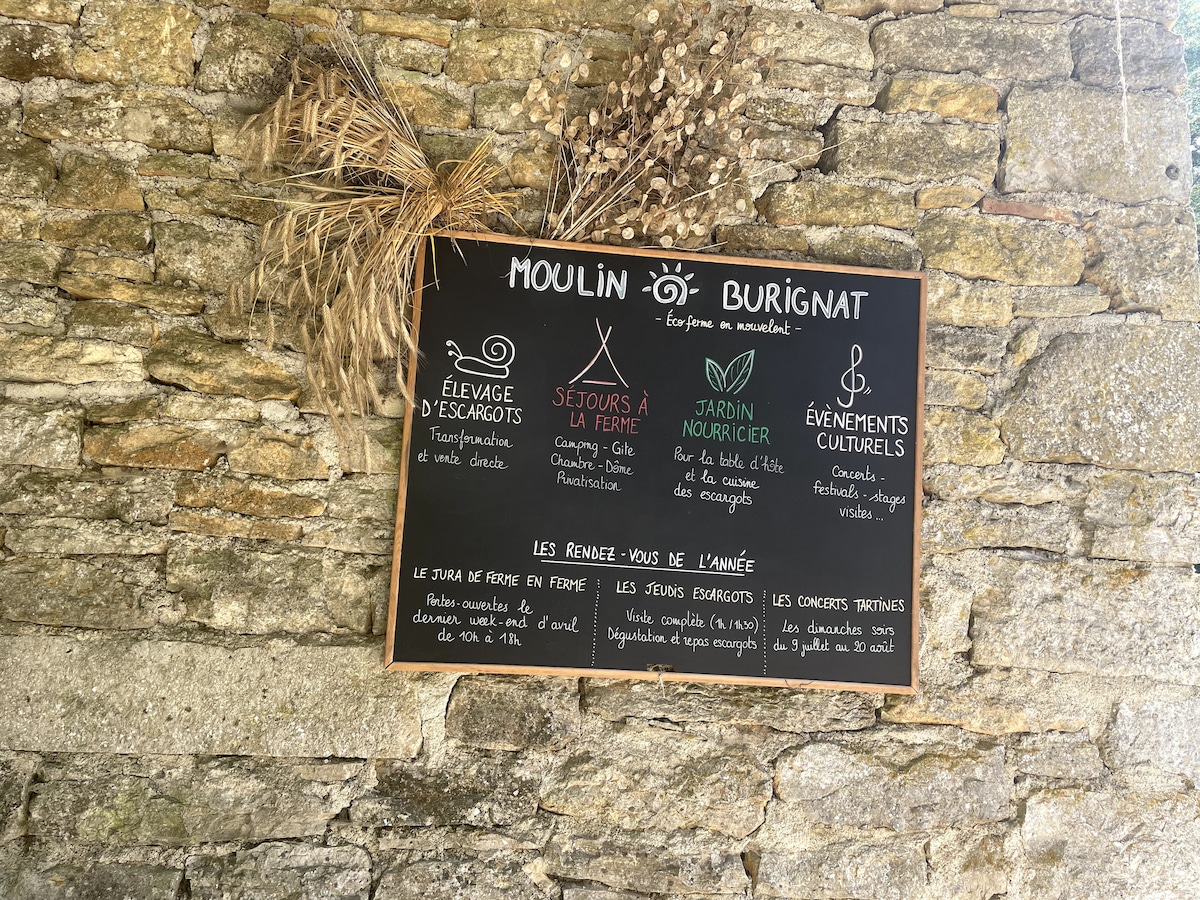 MOULIN BURIGNAT
- Écoferme en mouvement -
ÉLEVAGE
D'ESCARGOTS
Transformation
et vente directe
SÉJOURS À
LA FERME
Camping - Gite
Chambre - Dôme
Privatisation
JARDIN
NOURRICIER
Pour la table d'hôte
et la cuisine
des escargots
ÉVÈNEMENTS
CULTURELS
Concerts -
festivals - stages
visites ...
LES RENDEZ-VOUS DE L'ANNÉE
LE JURA DE FERME EN FERME
Portes-ouvertes le
dernier week-end d'avril
de 10h à 18h
LES JEUDIS ESCARGOTS
Visite complète (1h/1h30)
Dégustation et repas escargots
LES CONCERTS TARTINES
Les dimanches soirs
du 9 juillet au 20 août